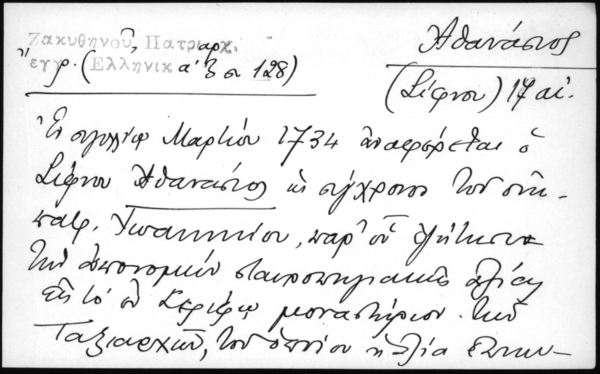 Ζακυθηνοῦ, Πατριαρχ.
ἔγγρ. (Ἑλληνικ α´ ξ σι 128)
Ἀθανάσιος
(Σίφνου) 17 αἰ.
Ἐν σιγιλλίῳ Μαρτίου 1734 ἀναφέρεται ὁ
Σίφνου Ἀθανάσιος ὡς σύγχρονος τοῦ οἰκ-
πατρ. Ἰωαννικίου, παρ' οὗ ἐζήτησε
τὴν ἀπονομὴν σταυροπηγιακῆς ἀξίας
εἰς τὸ ἐν Σερίφῳ μοναστήριον τῶν
Ταξιαρχῶν, τοῦ ὁποίου ἡ ἀξία